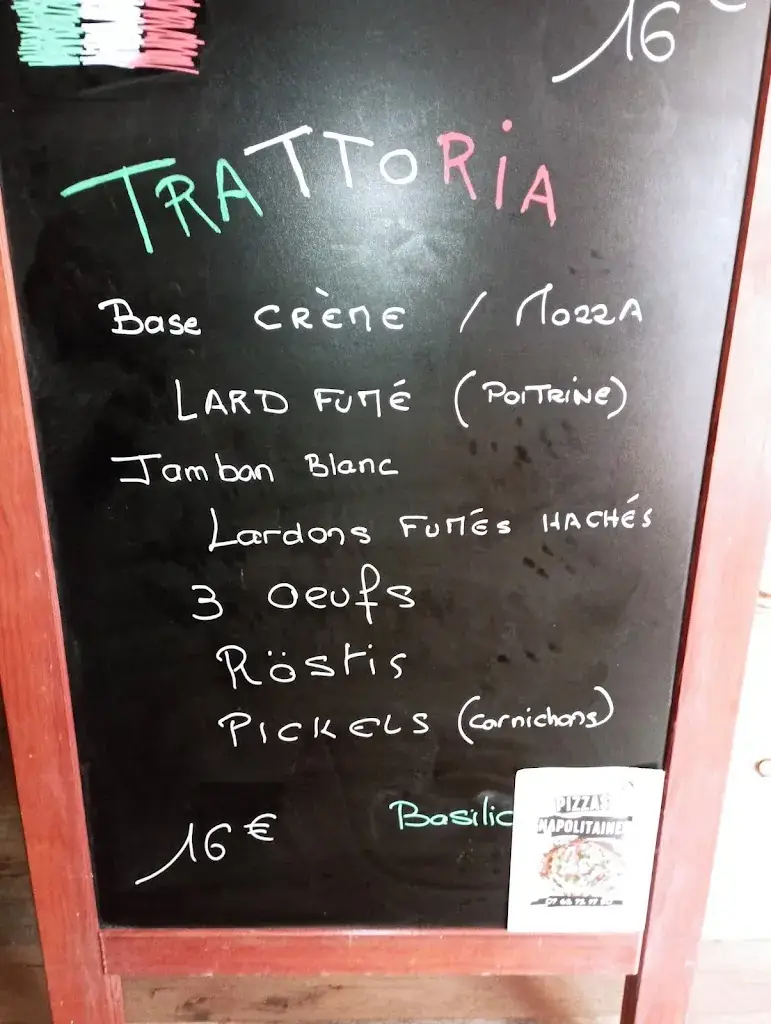 16 €
TRATTORIA
Base CRÈME / MOZZA
LARD FUMÉ (POITRINE)
Jambon Blanc
Lardons FUMÉS HACHÉS
3 Oeufs
Röstis
PICKELS (Cornichons)
16 €
Basilic
PIZZAS
NAPOLITAINES